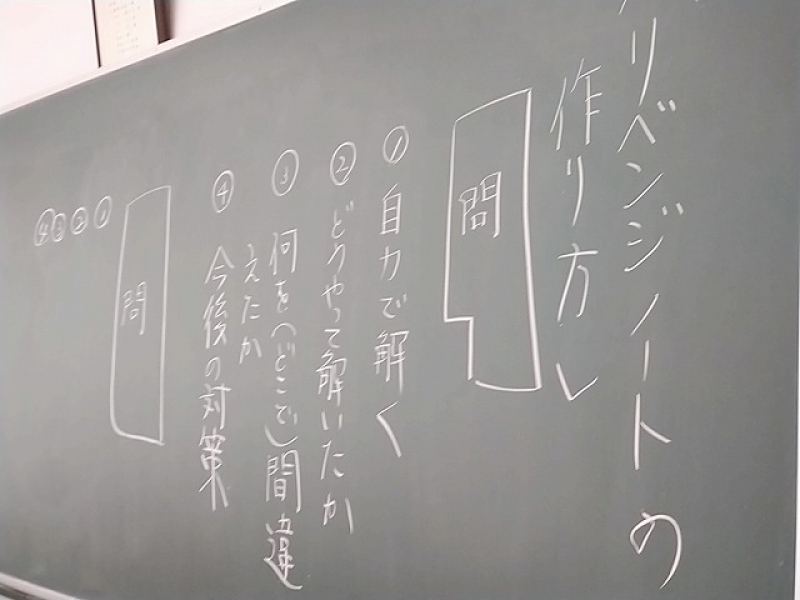 リベンジノートの
作り方
問
①自力で解く
②どうやって解いたか
③何を(どこで)間違
えたか
④今後の対策
問
①
②
③
④